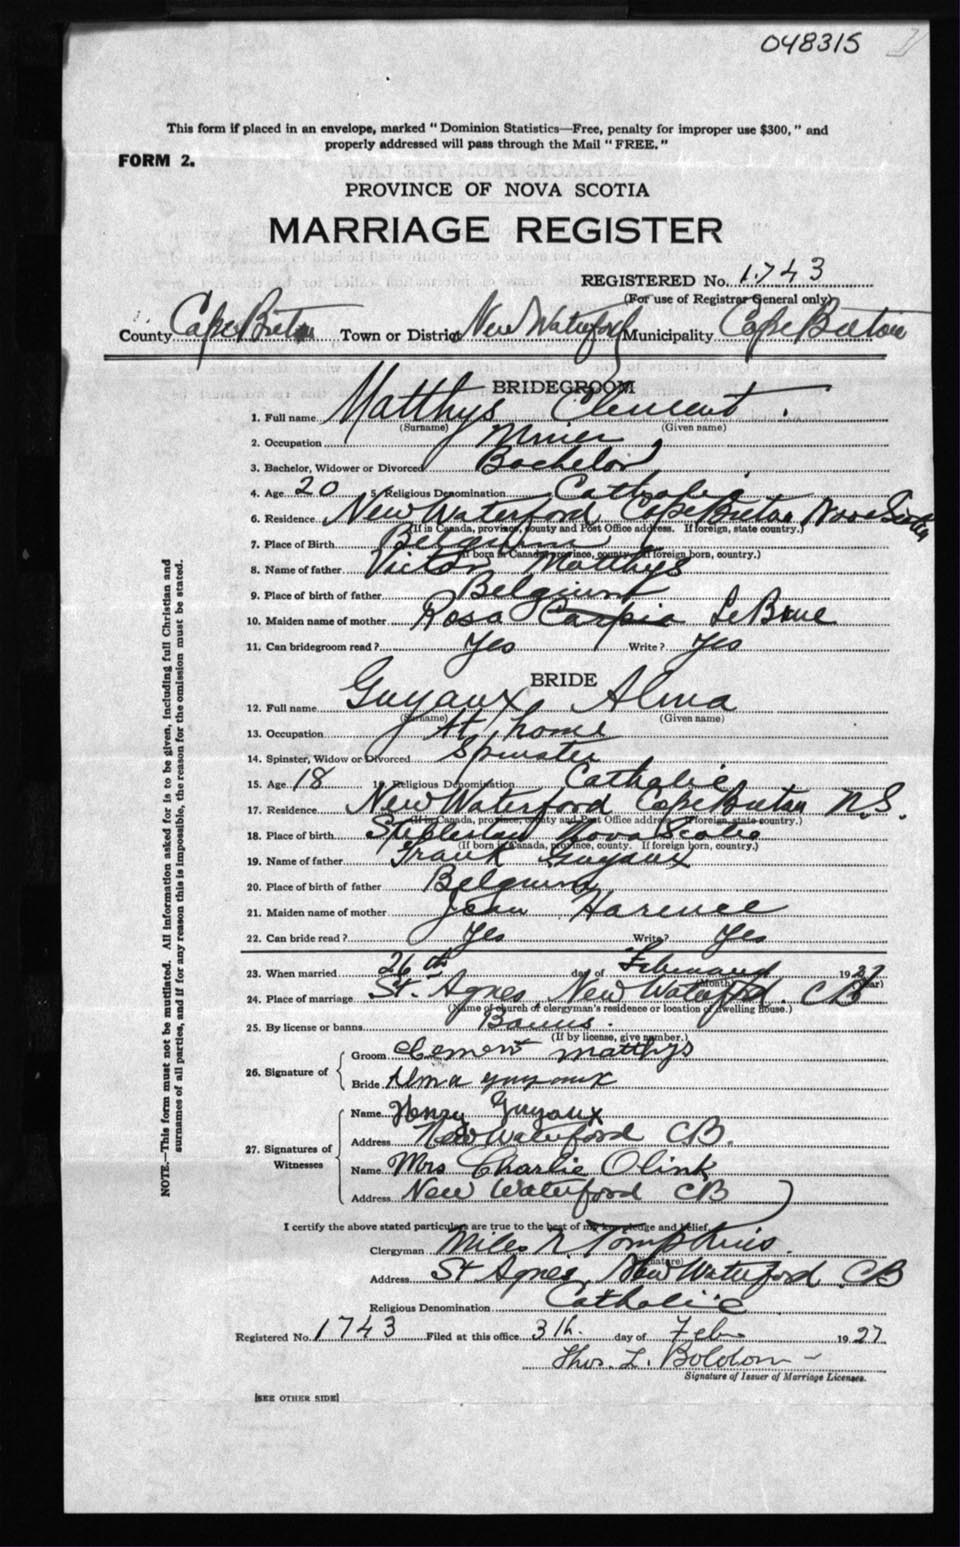 048315
This form if placed in an envelope, marked " Dominion Statistics—Free, penalty for improper use $300, " and
properly addressed will pass through the Mail " FREE. "
FORM 2.
PROVINCE OF NOVA SCOTIA
MARRIAGE REGISTER
REGISTERED No. 1743
(For use of Registrar General only)
County Cape Breton Town or District New Waterford Municipality Cape Breton
BRIDEGROOM
1. Full name Matthys Clement
(Surname) (Given name)
2. Occupation Miner
3. Bachelor, Widower or Divorced Bachelor
4. Age 20 5. Religious Denomination Catholic
6. Residence New Waterford Cape Breton Nova Scotia
(If in Canada, province, county and Post Office address. If foreign, state country.)
7. Place of Birth Belgium
(If born in Canada, province, county. If foreign born, country.)
8. Name of father Victor Matthys
9. Place of birth of father Belgium
10. Maiden name of mother Rosa
11. Can bridegroom read? Yes Write? Yes
BRIDE
12. Full name Guyaux Alma
(Surname) (Given name)
13. Occupation At home
14. Spinster, Widow or Divorced Spinster
15. Age 18 16. Religious Denomination Catholic
17. Residence New Waterford Cape Breton N.S.
(If in Canada, province, county and Post Office address. If foreign, state country.)
18. Place of birth Nova Scotia
(If born in Canada, province, county. If foreign born, country.)
19. Name of father Frank Guyaux
20. Place of birth of father Belgium
21. Maiden name of mother
22. Can bride read? Yes Write? Yes
23. When married 26th day of February 1927
(Month) (Year)
24. Place of marriage St. Agnes New Waterford. CB
(Name of church of clergyman's residence or location of dwelling house.)
25. By license or banns Banns.
(If by license, give number.)
26. Signature of
Groom Clement matthys
Bride Alma guyaux
27. Signatures of Witnesses
Name Henry Guyaux
Address New Waterford CB.
Name Mrs Charlie Olink
Address New Waterford CB
I certify the above stated particulars are true to the best of my knowledge and belief.
Clergyman Miles N. Tompkins.
(Signature)
Address St Agnes, New Waterford CB
Religious Denomination Catholic
Registered No. 1743 Filed at this office 3 day of Feb 1927
Thos. L.
Signature of Issuer of Marriage Licenses.
[SEE OTHER SIDE]
NOTE.—This form must not be mutilated. All information asked for is to be given, including full Christian and
surnames of all parties, and if for any reason this is impossible, the reason for the omission must be stated.